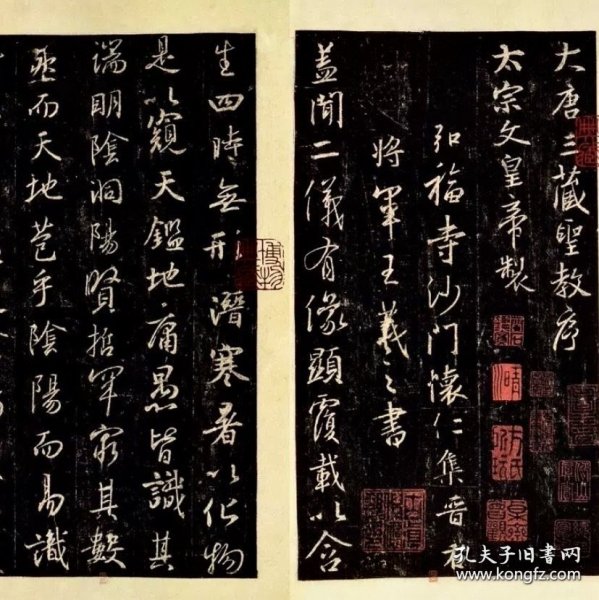 大唐三藏聖教序
太宗文皇帝製
弘福寺沙門懷仁集晉右
將軍王羲之書
蓋聞二儀有像顯覆載以含
生四時無形潛寒暑以化物
是以窺天鑑地庸愚皆識其
端明陰洞陽賢哲罕窮其數
然而天地苞乎陰陽而易識
孔夫子旧书网
www.kongfz.com